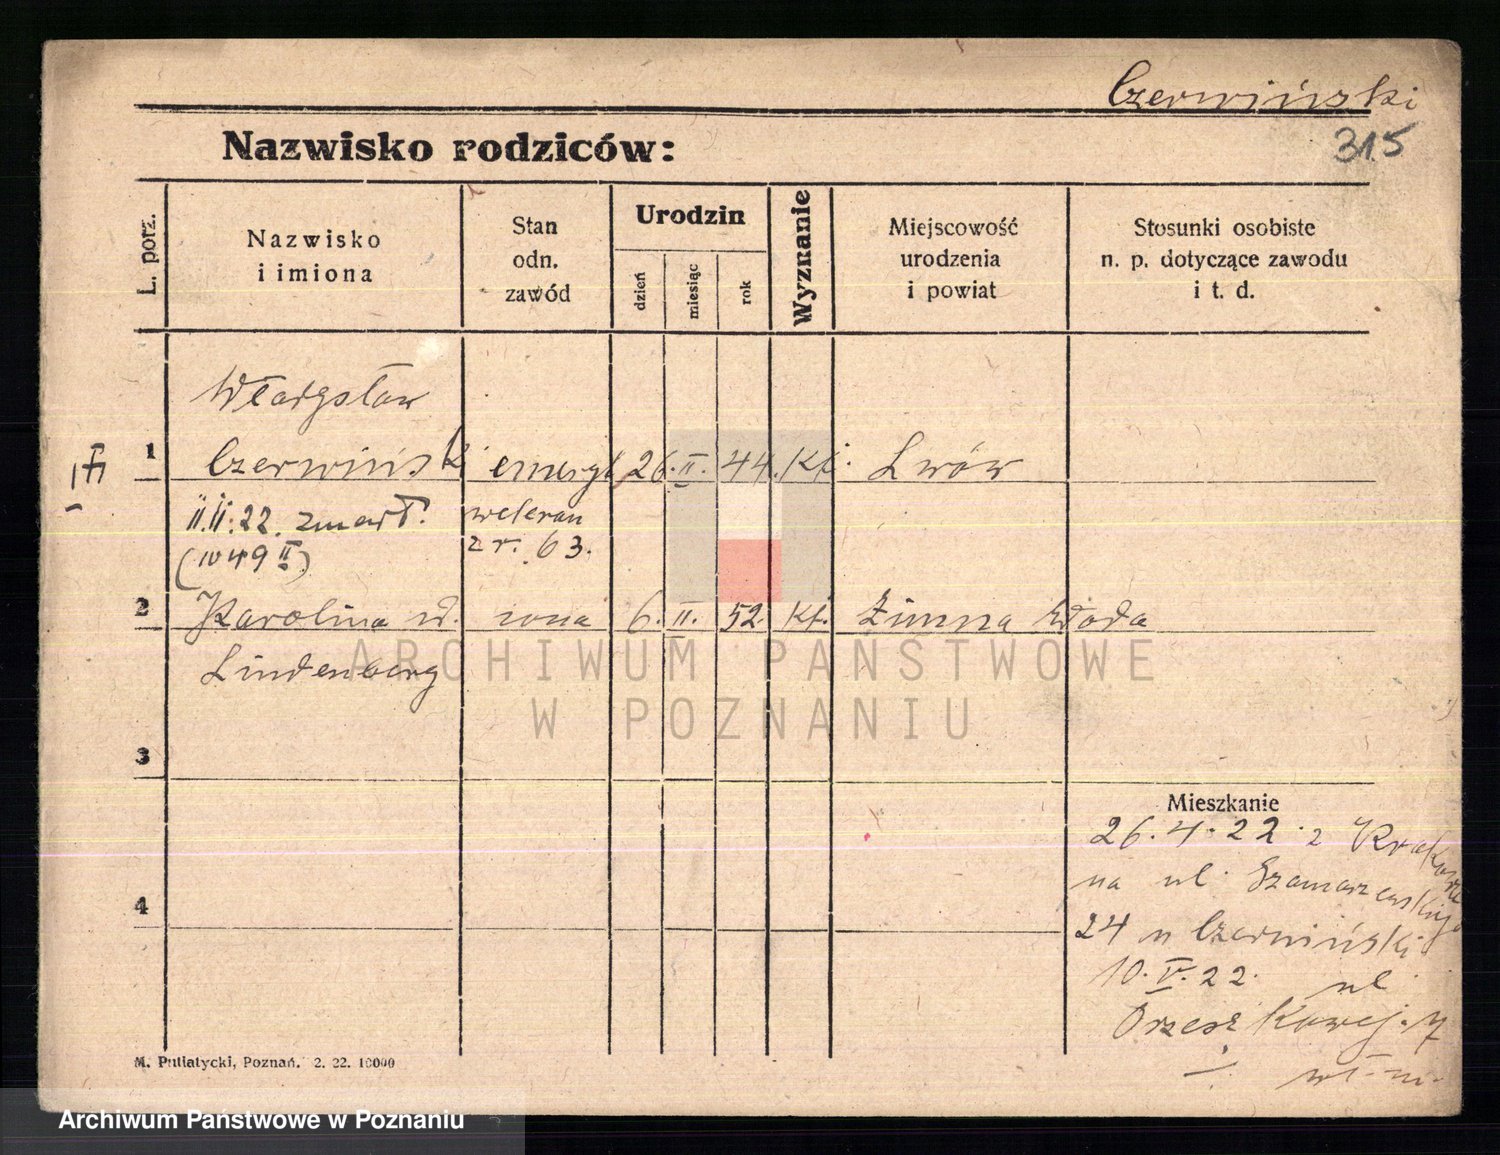 Czerwiński
315
Nazwisko rodziców:
L. porz.
Nazwisko
i imiona
Stan
odn.
zawód
Urodzin
dzień
miesiąc
rok
Wyznanie
Miejscowość
urodzenia
i powiat
Stosunki osobiste
n. p. dotyczące zawodu
i t. d.
Władysław
1 Czerwiński emeryt 26. II. 44. Kt. Lwów
II. II. 22. zmarł. weteran
(1049 II) z r. 63.
2 Karolina żona 6. II. 52. Kt. Zimna Woda
Lindenberg
ARCHIWUM PAŃSTWOWE
W POZNANIU
3
4
Mieszkanie
26.4.22. z Krakowa
na ul. Szamarzewskiego
24 u Czerwiński
10. V. 22. ul.
Orzeszkowej. 7
M. Putiatycki, Poznań. 2. 22. 10000
Archiwum Państwowe w Poznaniu